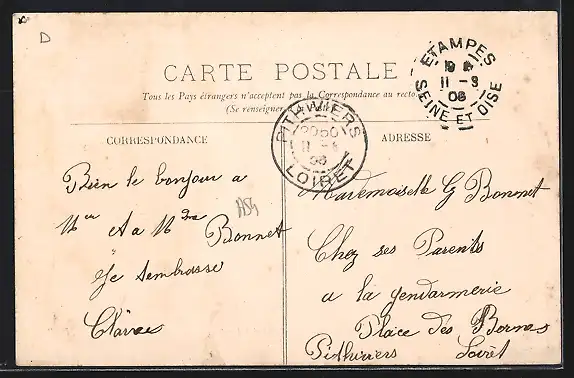 D
CARTE POSTALE
Tous les Pays étrangers n'acceptent pas la Correspondance au recto.
(Se renseigner à la Poste)
ETAMPES
11 -3
06
SEINE ET OISE
PITHIVIERS
2050
11
06
LOIRET
CORRESPONDANCE
Bien le bonjour a
Mr et a Mme Bonnet
Je tembrasse
ADRESSE
Mademoiselle G Bonnet
Chez ses Parents
a la gendarmerie
Place des Bornes
Pithiviers Loiret